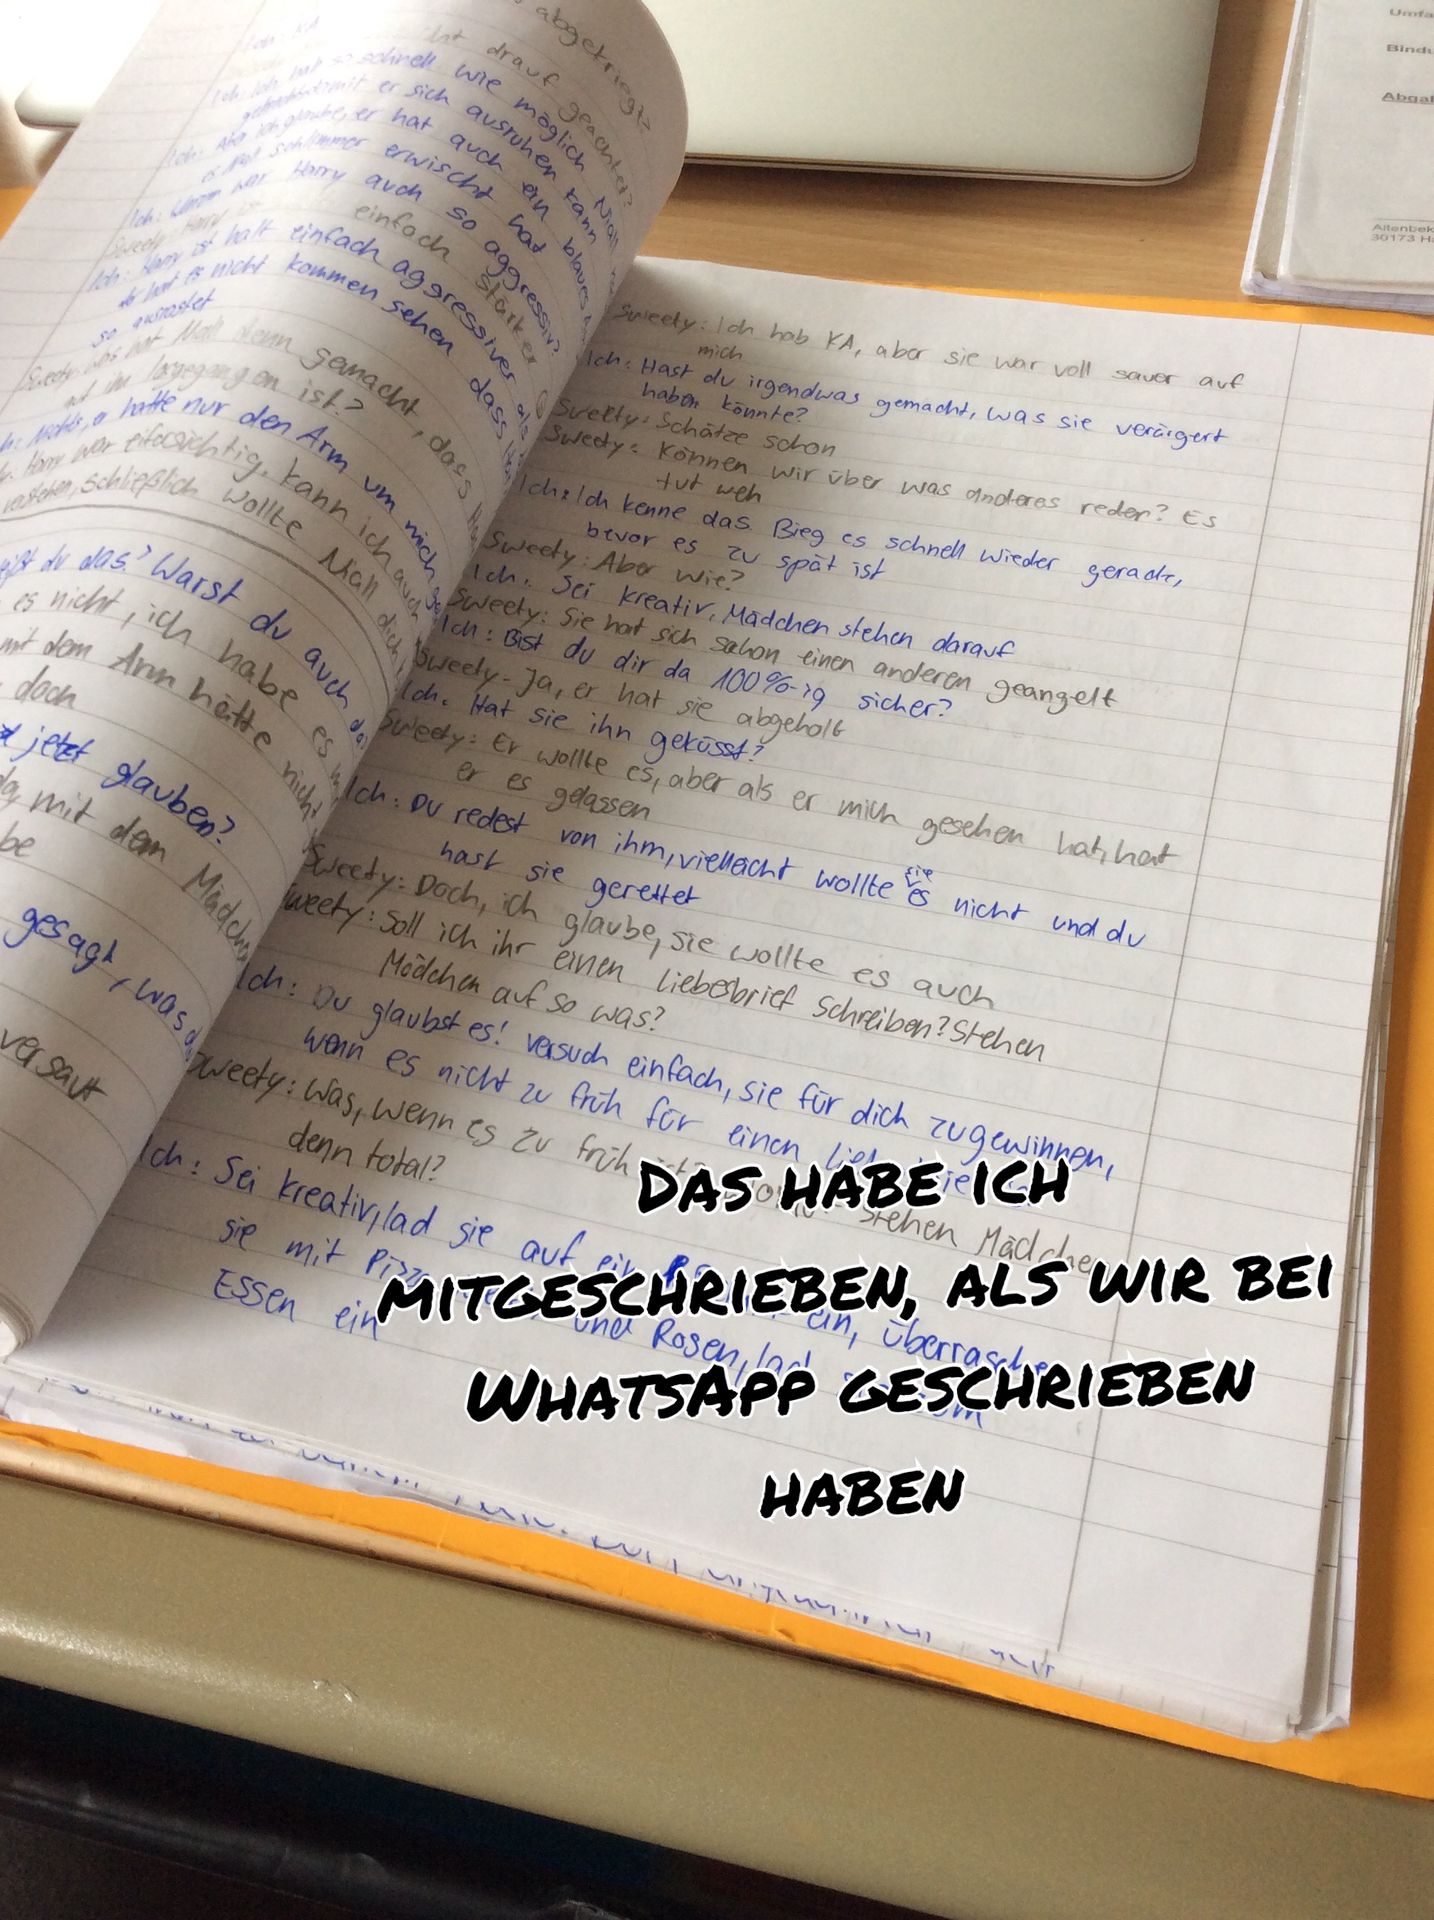 abgekriegt?
Ich: KA
drauf geachtet?
Ich: Ich hab so schnell wie möglich Niall
damit er sich ausruhen kann
Ich: Aber ich glaube, er hat auch ein blaues
schlimmer erwischt hat
Ich: Warum war Harry auch so aggressiv?
einfach stärker
Ich: Harry ist halt einfach aggressiver als
hat es nicht kommen sehen, dass
so ausrastet
Sweety: Was hat Niall denn gemacht, das
mit ihm losgegangen ist?
Nichts, er hatte nur den Arm um mich
Harry war eifersüchtig, kann ich auch
verstehen, schließlich wollte Niall dich
du das? Warst du auch da
es nicht, ich habe es
mit dem Arm hätte nicht
doch
jetzt glauben?
mit dem Mädchen
gesagt, was
versaut
Sweety: Ich hab KA, aber sie war voll sauer auf
mich
Ich: Hast du irgendwas gemacht, was sie verärgert
haben könnte?
Sweety: Schätze schon
Sweety: Können wir über was anderes reden? Es
tut weh
Ich: Ich kenne das. Bieg es schnell wieder gerade,
bevor es zu spät ist
Sweety: Aber wie?
Ich: Sei kreativ, Mädchen stehen darauf
Sweety: Sie hat sich schon einen anderen geangelt
Ich: Bist du dir da 100%-ig sicher?
Sweety: Ja, er hat sie abgeholt
Ich: Hat sie ihn geküsst?
Sweety: Er wollte es, aber als er mich gesehen hat, hat
er es gelassen
Ich: Du redest von ihm, vielleicht wollte sie es nicht und du
hast sie gerettet
Sweety: Doch, ich glaube, sie wollte es auch
Sweety: Soll ich ihr einen Liebesbrief schreiben? Stehen
Mädchen auf so was?
Ich: Du glaubst es! Versuch einfach, sie für dich zugewinnen,
wenn es nicht zu früh für einen
Sweety: Was, wenn es zu früh stehen Mädchen
denn total?
Ich: Sei kreativ, lad sie auf ein ein, überrasche
sie mit und Rosen, lad
Essen ein
Das habe ich
mitgeschrieben, als wir bei
WhatsApp geschrieben
haben
Umfa
Bindu
Abgal
Altenbek
30173 Ha